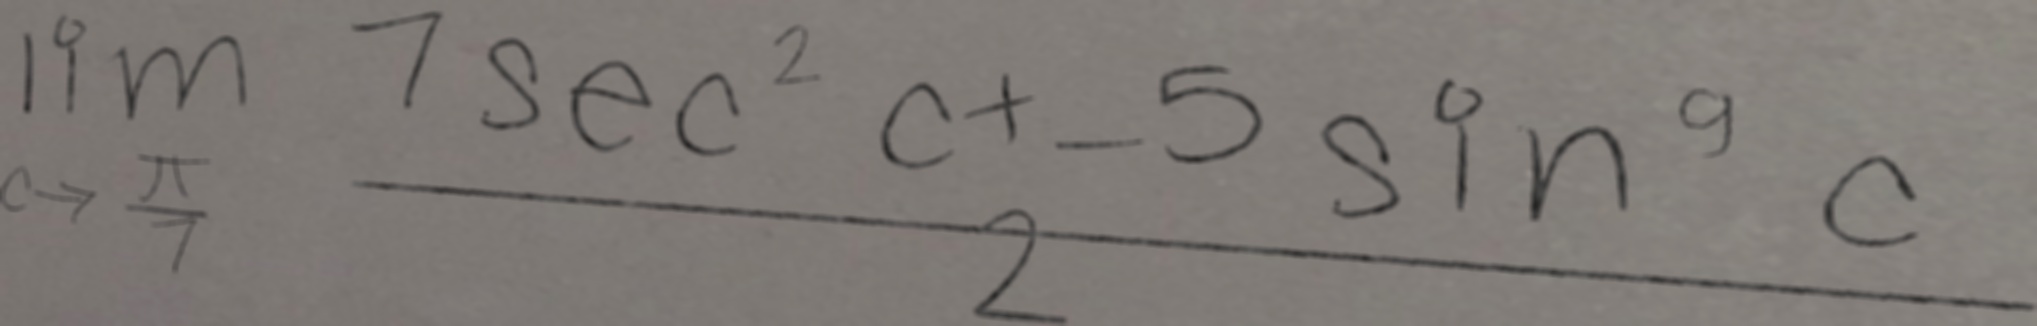 \lim_{c \to \frac{\pi}{7}} \frac{7 \sec^2 c + -5 \sin^9 c}{2}